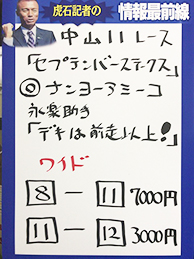 虎石記者の
情報最前線
中山11レース
「セプテンバーステークス」
◎ナンヨーアミーコ
永楽助手
「デキは前走以上!」
ワイド
8 － 11 7000円
11 － 12 3000円